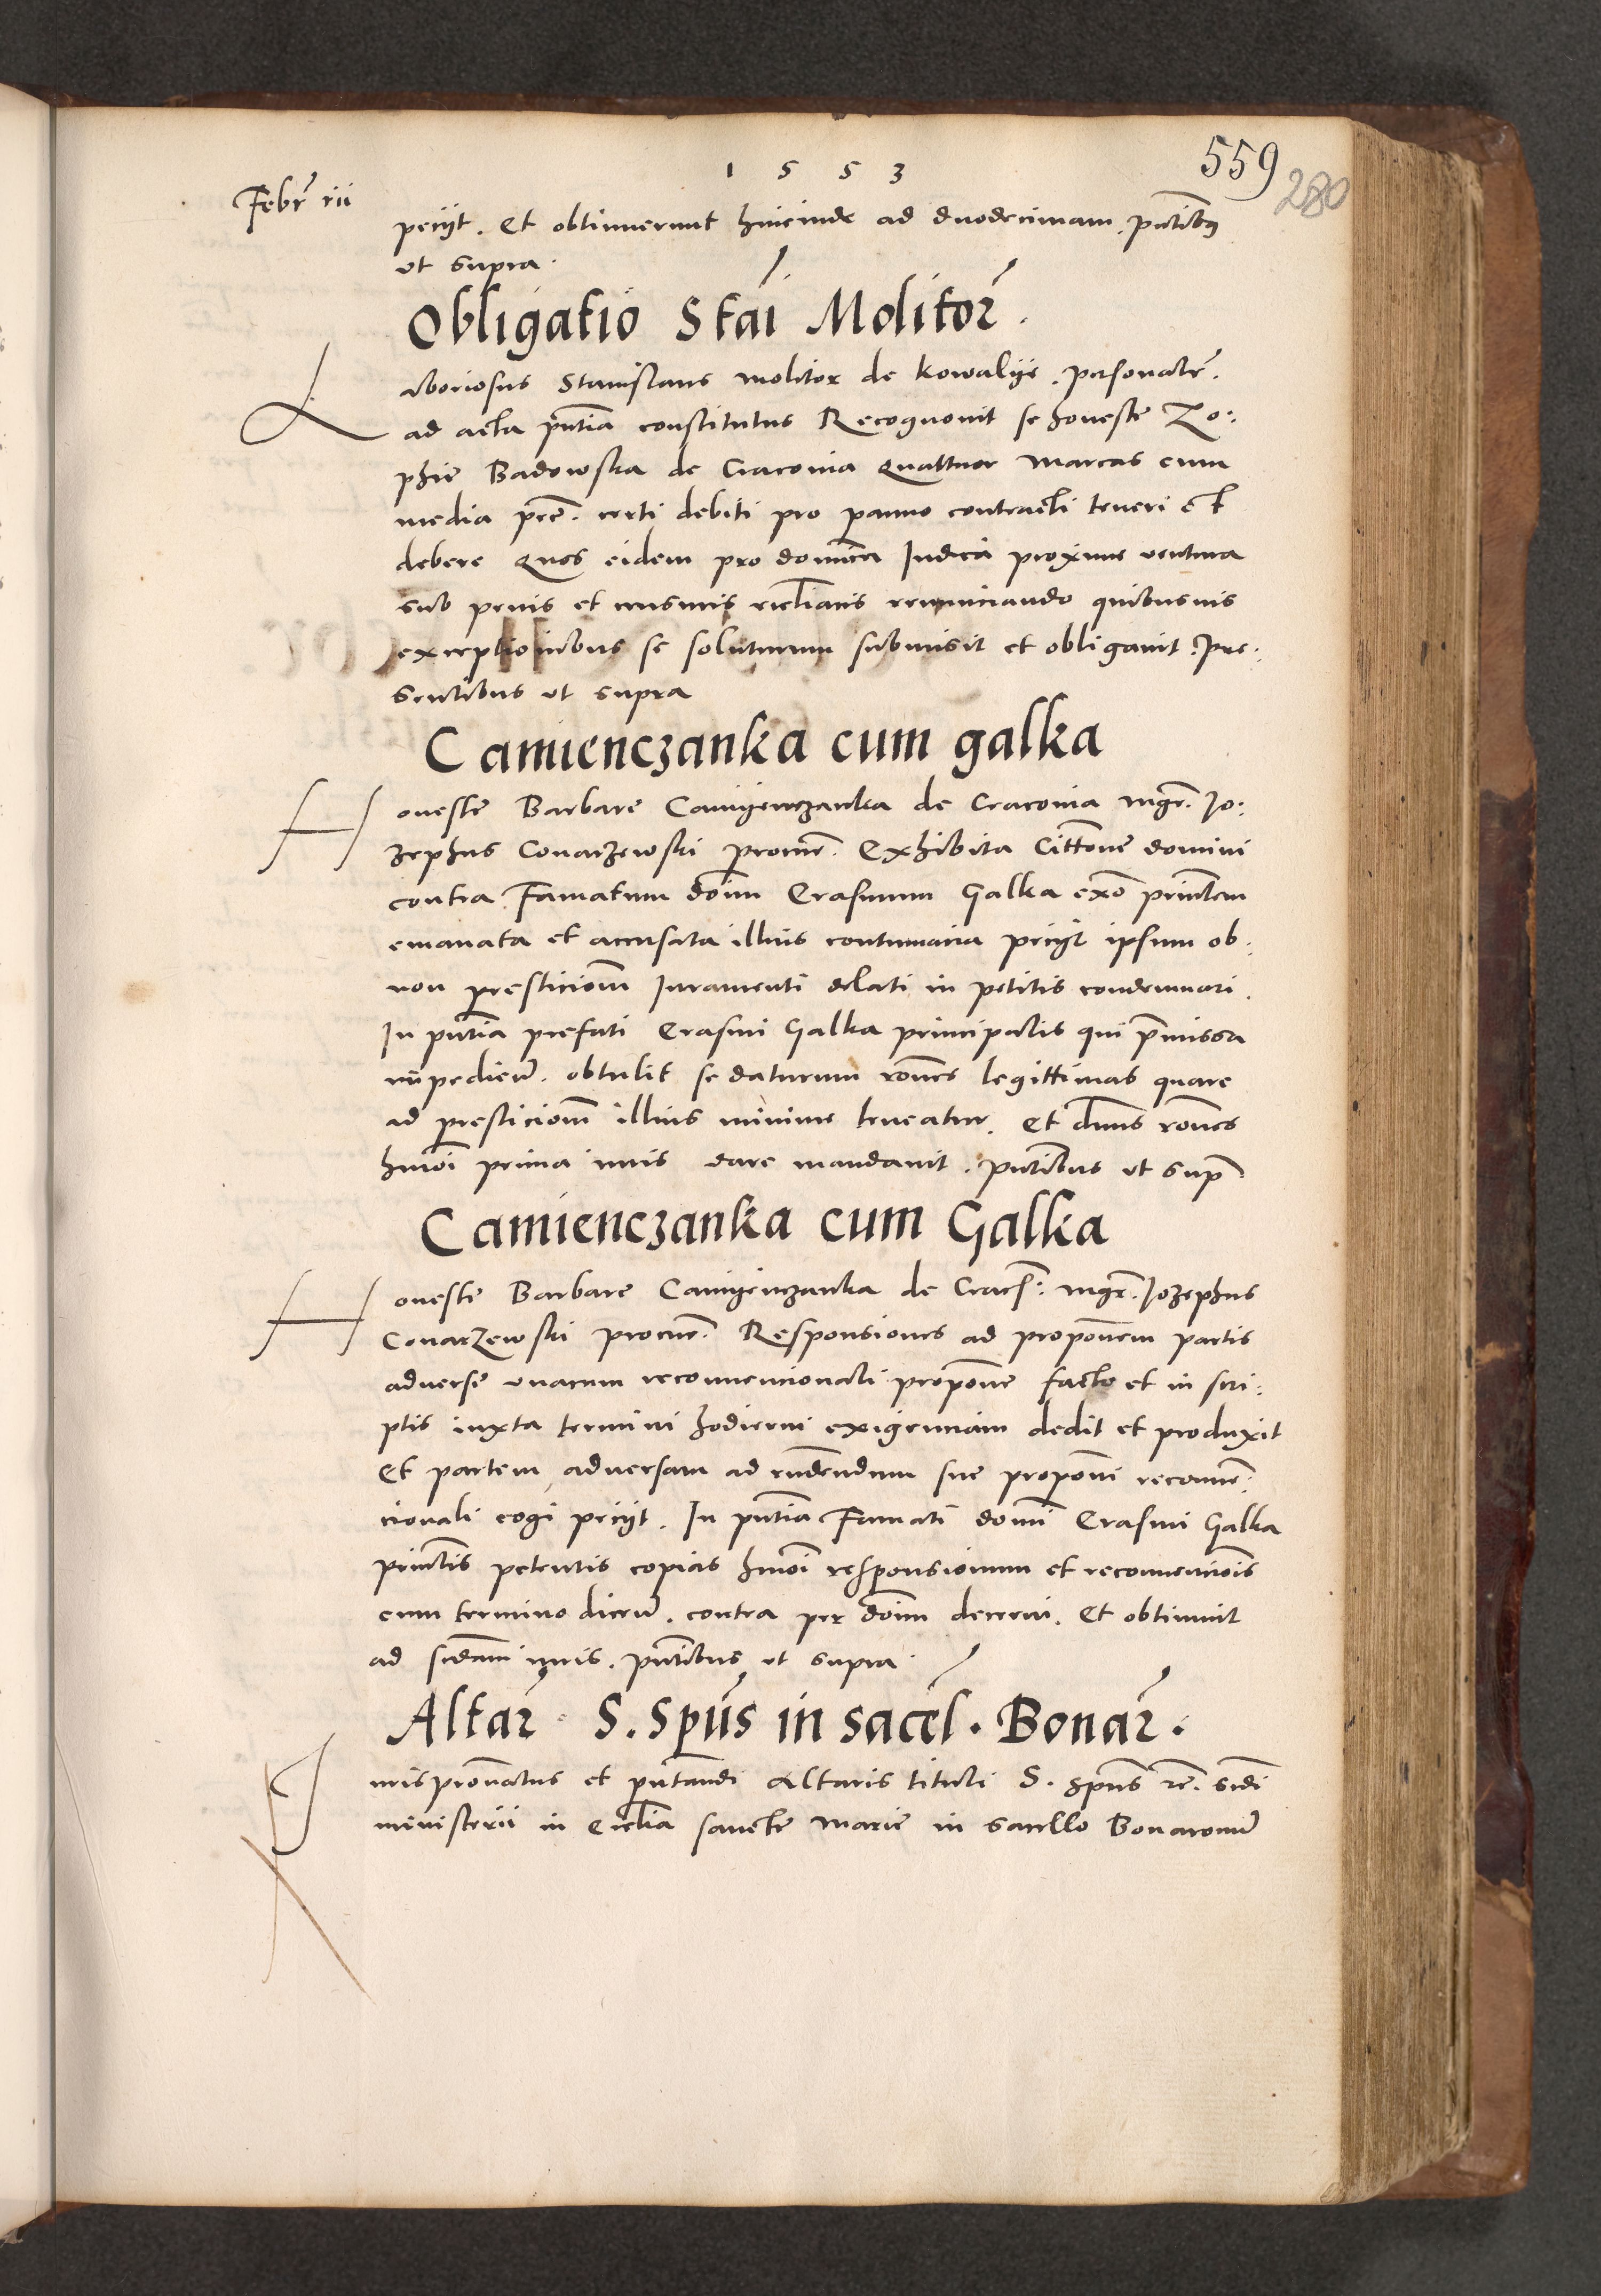 1 5 5 3
559
280
Febr̃ xii
peciit. Et obtinuerunt hincinde ad duodecimam. pñtibus
ut supra.
Obligatio Stai Molitor̃.
Laboriosus Stanislaus molitor de Kowalije. personalr̃.
ad acta pñtia constitutus Recognovit se honeste Zo:
phie Badowska de Cracovia Quattuor marcas cum
media pec̃. certi debiti pro panno contracti teneri et
debere Quas eidem pro dominica Iudica proxime ventura
sub penis et censuris ecclīacis renunciando quibusvis
exceptionibus se soluturum submisit et obligavit. Pre:
sentibus ut supra
Camienczanka cum galka
Honeste Barbare Camyenczanka de Cracovia mgr̃. Jo:
zephus Conarzewski procur̃. Exhibita Cittõne domini
contra Famatum dom̃ Erasmum Galka exõ principalem
emanata et accusata illius contumacia peciit ipsum ob
non presticionem Iuramenti delati in petitis condemnari.
In pñtia prefati Erasmi Galka principalis qui premissa
impedien̄. obtulit se daturum rõnes legittimas quare
ad presticionem illius minime teneatur. Et dñus rõnes
hmõi prima iuris dare mandavit. pñtibus ut sup̃
Camienczanka cum Galka
Honeste Barbare Camyenczanka de Crac̃. mgr̃. Jozephus
Conarzewski procur̃. Responsiones ad propõnem partis
adverse unacum reconvencionali propõne facto et in scri:
ptis iuxta termini hodierni exigenciam dedit et produxit
Et partem adversam ad rñdendum sue propõni reconven:
cionali cogi peciit. In pñtia Famati domi Erasmi Galka
princlis petentis copias hmõi responsionum et reconvencionis
cum termino dicen̄. contra per dom̃ decerni. Et obtinuit
ad scdam iuris. pñtibus ut supra.
Altar̃ S. Spũs in sacel. Bonar̃.
Iurispronatus et pñtandi Altaris tituli S. Spũs scdi
ministerii in Ecclīa sancte Marie in sacello Bonaronum̃